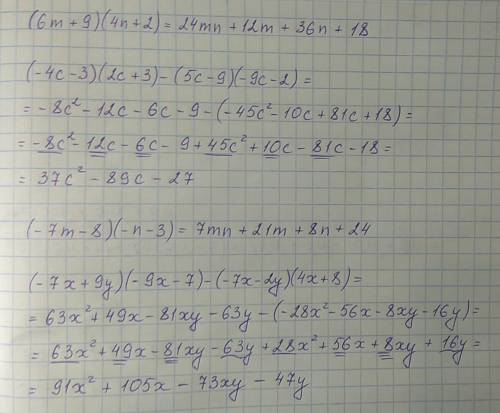 (6m+9)(4n+2)=24mn+12m+36n+18
(-4c-3)(2c+3)-(5c-9)(-9c-2)=
=-8c²-12c-6c-9-(-45c²-10c+81c+18)=
=-8c²-12c-6c-9+45c²+10c-81c-18=
=37c²-89c-27
(-7m-8)(-n-3)=7mn+21m+8n+24
(-7x+9y)(-9x-7)-(-7x-2y)(4x+8)=
=63x²+49x-81xy-63y-(-28x²-56x-8xy-16y)=
=63x²+49x-81xy-63y+28x²+56x+8xy+16y=
=91x²+105x-73xy-47y